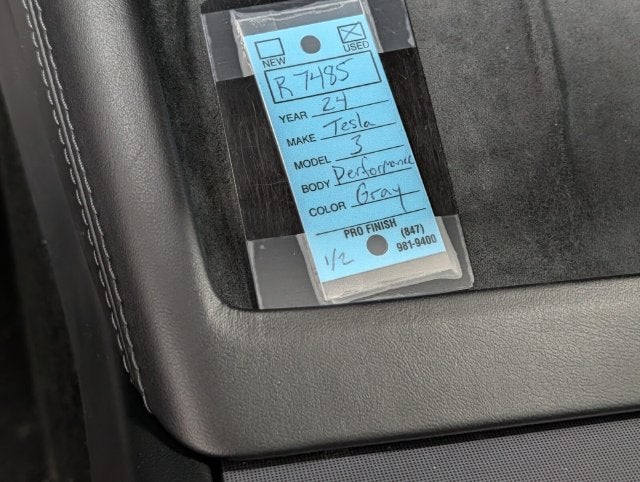 NEW USED
R7485
YEAR 24
MAKE Tesla
MODEL 3
BODY Performance
COLOR Gray
PRO FINISH (847)
1/2 981-9400